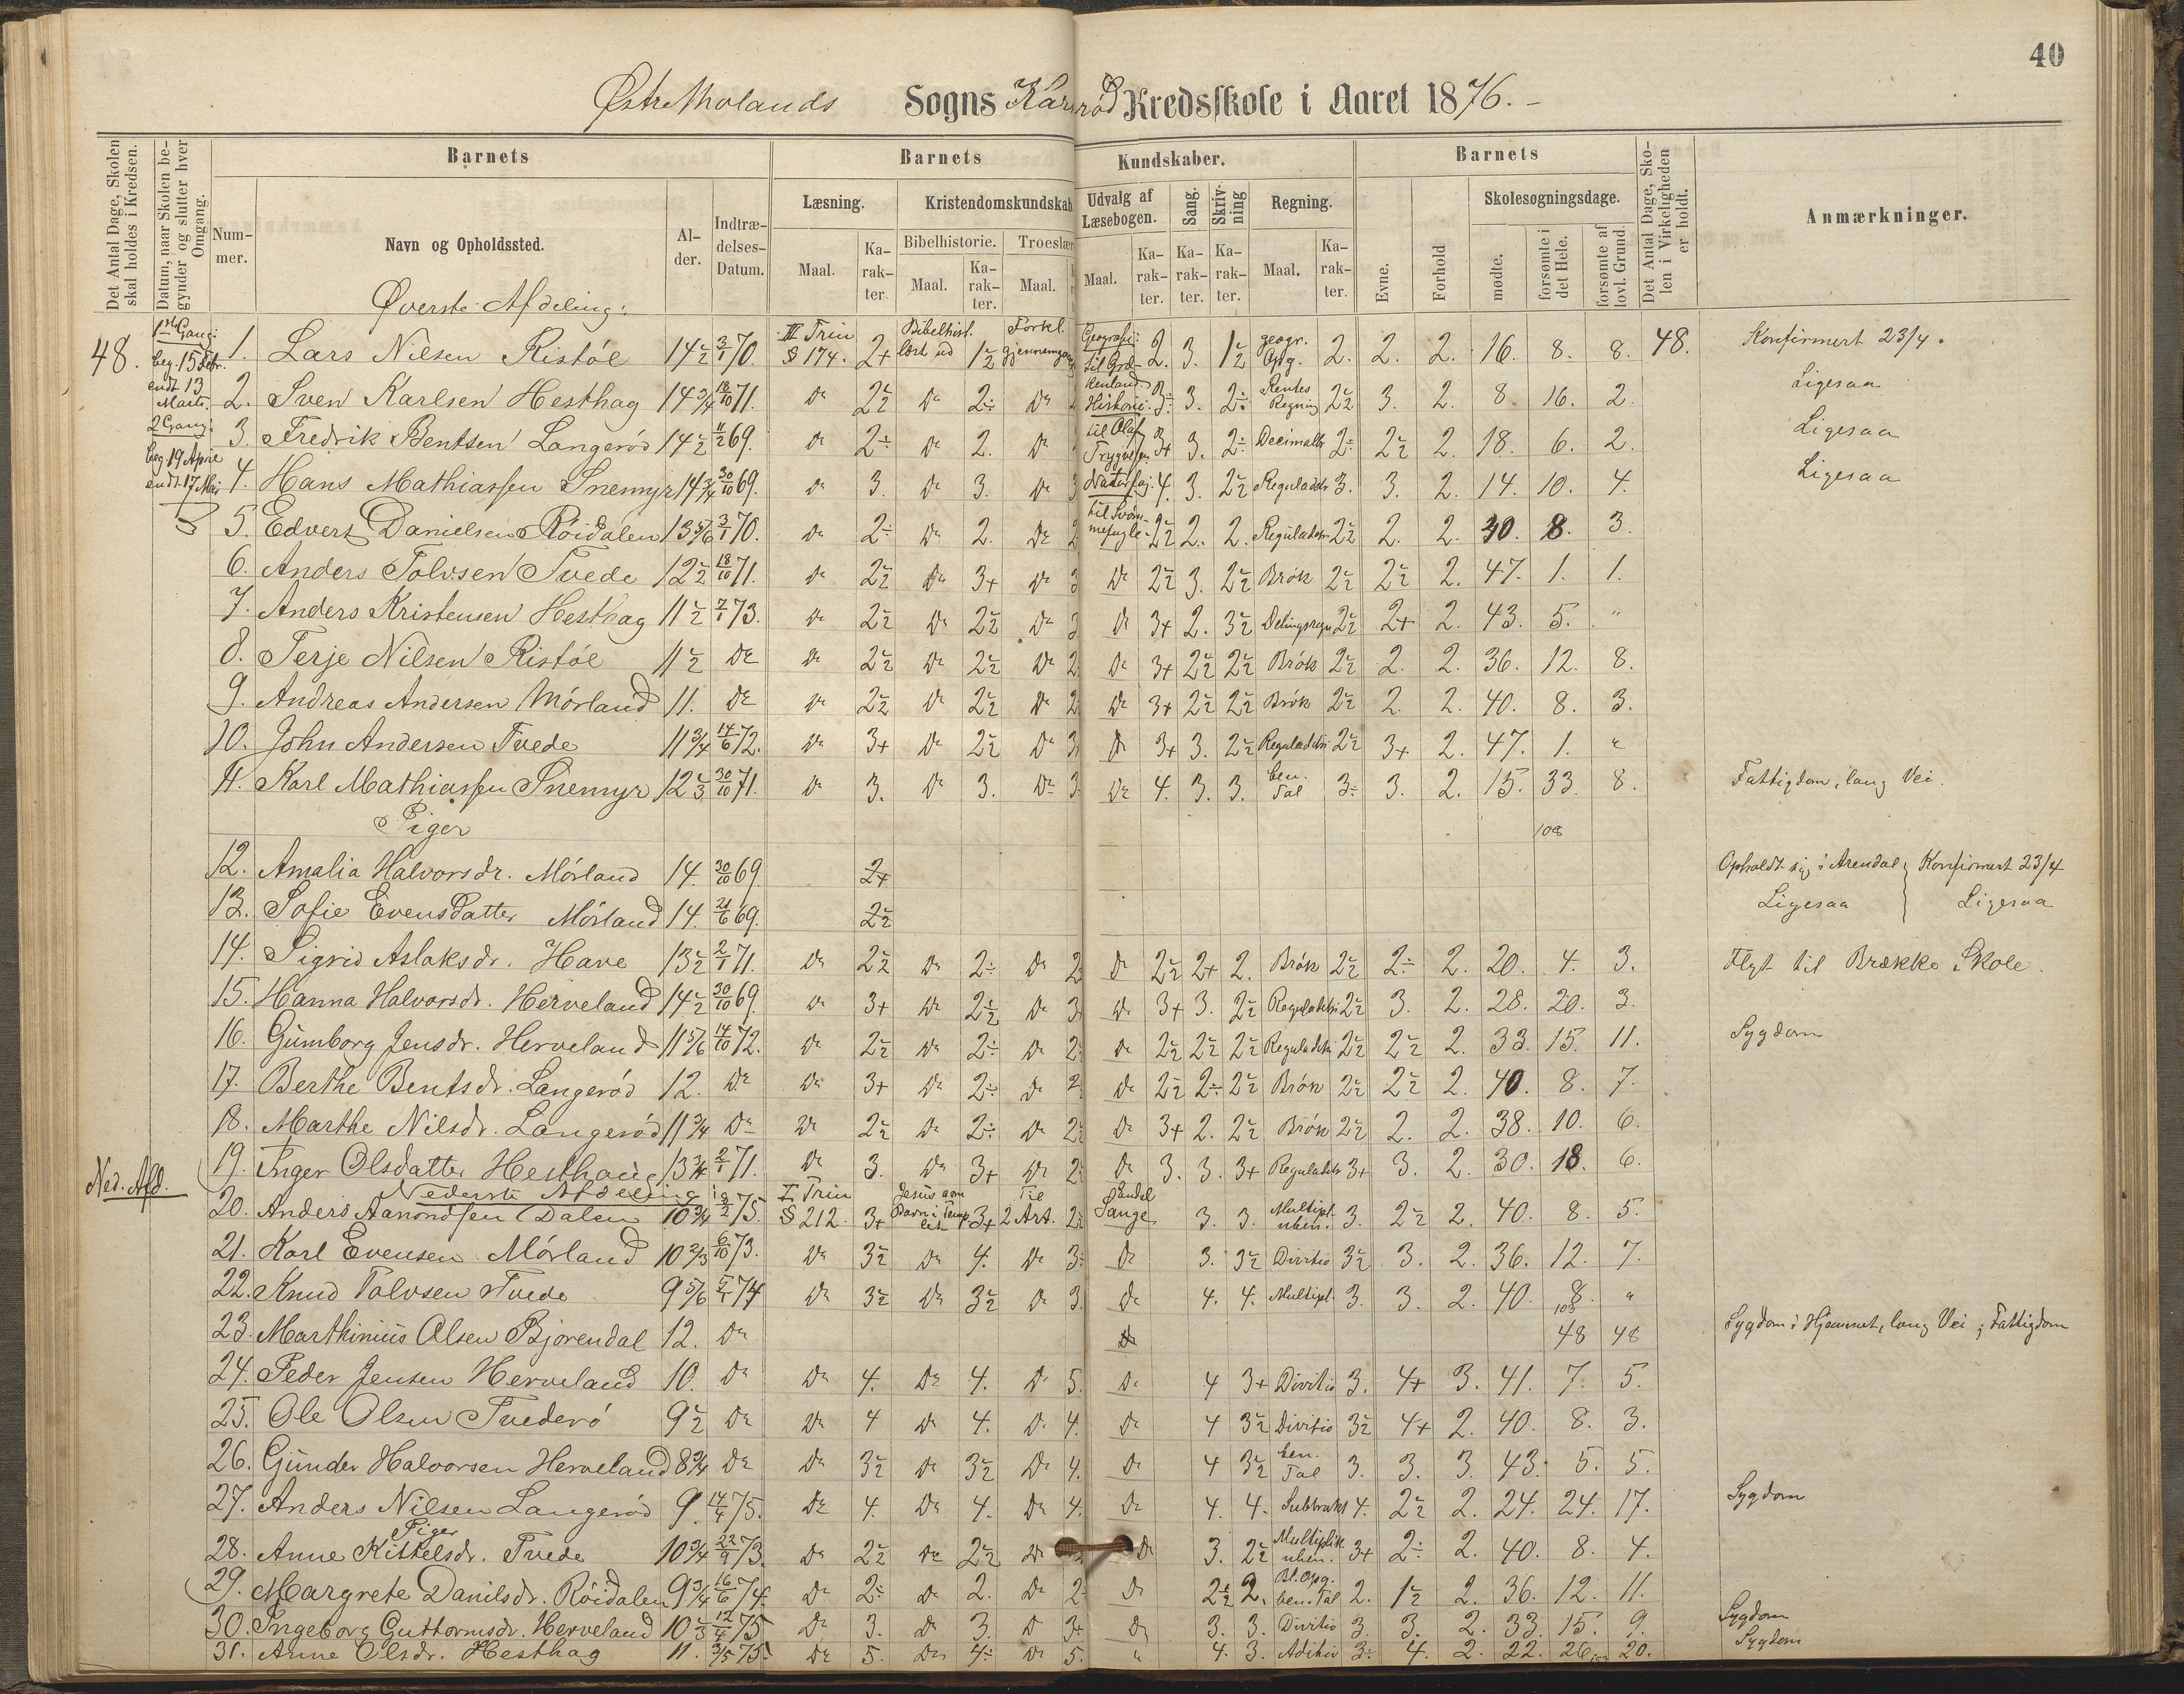 40
Østre Molands Sogns Karsrød Kredsskole i Aaret 1876.-
Det Antal Dage, Skolen skal holdes i Kredsen.
Datum, naar Skolen begynder og slutter hver Omgang.
Barnets
Nummer.
Navn og Opholdssted.
Alder.
Indtrædelses-Datum.
Barnets Kundskaber.
Læsning.
Kristendomskundskab
Bibelhistorie. Troeslær
Maal. Karakter. Maal. Karakter. Maal.
Udvalg af Læsebogen. Sang. Skrivning Regning.
Maal. Karakter. Karakter. Karakter. Maal. Karakter.
Barnets
Evne. Forhold
Skolesøgningsdage.
mødte. forsømte i det Hele. forsømte af lovl. Grund.
Det Antal Dage, Skolen i Virkeligheden er holdt.
Anmærkninger.
Øverste Afdeling:
48. 1ste Gang: beg. 15 Febr. endt 13 Marts. 2 Gang: beg. 19 April endt 17 Mai
1. Lars Nilsen Ristøl 14½ 3/1 70. III Trin § 174. 2+ Bibelhist. læst ud 1½ Forkl. gjennemgaa Geografi: til Græ- 2. 3. 1½ geogr. Opg. 2. 2. 2. 16. 8. 8. 48. Konfirmert 23/4.
2. Sven Karlsen Hesthag 14¾ 18/10 71. Do 2½ Do 2÷ Do kenland Historie: 3÷ 3. 2÷ Rentes Regning 2½ 3. 2. 8. 16. 2. Ligesaa
3. Fredrik Bentsen Langerød 14½ 11/2 69. Do 2÷ Do 2. Do til Olaf Trygvesen 3+ 3. 2÷ Decimalbr 2÷ 2½ 2. 18. 6. 2. Ligesaa
4. Hans Mathiassen Snemyr 14¾ 30/10 69. Do 3. Do 3. Do 3 Naturfag: 4. 3. 2½ Reguladetr 3. 3. 2. 14. 10. 4. Ligesaa
5. Edvert Danielsen Røidalen 13 5/6 3/1 70. Do 2÷ Do 2. Do 2 til Svømmefugle- 2½ 2. 2. Reguladetr. 2½ 2. 2. 40. 8. 3.
6. Anders Tolvsen Tvede 12½ 18/10 71. Do 2½ Do 3+ Do 3 Do 2½ 3. 2½ Brøk 2½ 2½ 2. 47. 1. 1.
7. Anders Kristensen Hesthag 11½ 7/1 73. Do 2½ Do 2½ Do 3 Do 3+ 2. 3½ Delingsregn 2½ 2+ 2. 43. 5. "
8. Terje Nilsen Ristøl 11½ Do Do 2½ Do 2½ Do 2. Do 3+ 2½ 2½ Brøk 2½ 2. 2. 36. 12. 8.
9. Andreas Andersen Mørland 11. Do Do 2½ Do 2½ Do 2 Do 3+ 2½ 2½ Brøk 2½ 2. 2. 40. 8. 3.
10. John Andersen Tvede 11¾ 14/6 72. Do 3+ Do 2½ Do 3 Do 3+ 3. 2½ Reguladetri 2½ 3+ 2. 47. 1. "
11. Karl Mathiassen Snemyr 12⅔ 30/10 71. Do 3. Do 3. Do 3. Do 4. 3. 3. ben. Tal 3÷ 3. 2. 15. 33. 8. Fattigdom, lang Vei.
Piger 108
12. Amalia Halvorsdr. Mørland 14. 30/10 69. 2+ Opholdt sig i Arendal, Konfirmert 23/4
13. Sofie Evensdatter Mørland 14. 21/6 69. 2½ Ligesaa Ligesaa
14. Sigrid Aslaksdr. Have 13½ 2/1 71. Do 2½ Do 2÷ Do 2 Do 2½ 2+ 2. Brøk 2½ 2÷ 2. 20. 4. 3. Flyt til Brække Skole.
15. Hanna Halvorsdr. Herveland 14½ 30/10 69. Do 3+ Do 2½ Do 3 Do 3+ 3. 2½ Reguladetri 2½ 3. 2. 28. 20. 3.
16. Gumborg Jensdr. Herveland 11 5/6 14/10 72. Do 2½ Do 2÷ Do 2 Do 2½ 2½ 2½ Reguladetri 2½ 2½ 2. 33. 15. 11. Sygdom
17. Berthe Bentsdr. Langerød 12. Do Do 3+ Do 2÷ Do 2 Do 2½ 2÷ 2½ Brøk 2½ 2½ 2. 40. 8. 7.
18. Marthe Nilsdr. Langerød 11¾ Do Do 2½ Do 2÷ Do 2 Do 3+ 2. 2½ Brøk 2½ 2. 2. 38. 10. 6.
19. Inger Olsdatter Hesthaug 13¾ 2/1 71. Do 3. Do 3+ Do 2 Do 3. 3. 3+ Reguladetr 3+ 3. 2. 30. 18. 6.
Ned. Afd. Nederste Afdeling:
20. Anders Aanondsen Dalen 10¾ 9/2 75. I Trin § 212. 3+ Jesus som Barn i Templet 3+ Til 2 Art. 2 Endel Sange 3. 3. Multipl. uben. 3. 2½ 2. 40. 8. 5.
21. Karl Evensen Mørland 10⅔ 6/10 73. Do 3½ Do 4. Do 3 Do 3. 3½ Divisio 3½ 3. 2. 36. 12. 7.
22. Knud Tolvsen Tvede 9 5/6 5/1 74 Do 3½ Do 3½ Do 3. Do 4. 4. Multipl. 3. 3. 2. 40. 8. "
108
23. Marthinius Olsen Bjorendal 12. Do Do 48 48 Sygdom i Hjemmet, lang Vei; Fattigdom
24. Peder Jensen Herveland 10. Do Do 4. Do 4. Do 5. Do 4 3+ Divisio 3. 4+ 3. 41. 7. 5.
25. Ole Olsen Tvederø 9½ Do Do 4 Do 4. Do 4. Do 4 3½ Divisio 3½ 4+ 2. 40. 8. 3.
26. Gunder Halvorsen Herveland 8¾ Do Do 3½ Do 3½ Do 4. Do 4 3½ ben. Tal 3. 3. 3. 43. 5. 5.
27. Anders Nilsen Langerød 9. 14/4 75. Do 4. Do 4. Do 4. Do 4. 4. Subtrakt 4. 2½ 2. 24. 24. 17. Sygdom
Piger
28. Anne Kittelsdr. Tvede 10¾ 22/9 73. Do 2½ Do 2½ Do Do 3. 2½ Multiplik uben. 3+ 2÷ 2. 40. 8. 4.
29. Margrete Danilsdr. Røidalen 9¾ 16/6 74. Do 2÷ Do 2. Do 2 Do 2½ 2. Bl. Opg. ben. Tal 2. 1½ 2. 36. 12. 11.
30. Ingeborg Guttormsdr. Herveland 10⅔ 12/4 75 Do 3. Do 3. Do 3+ Do 3. 3. Divisio 3. 3. 2. 33. 15. 9. Sygdom
31. Anne Olsdr. Hesthag 11. 3/5 75. Do 5. Do 4÷ Do 5. " 4. 3. Aditio 3÷ 4. 2. 22. 26 20. Sygdom